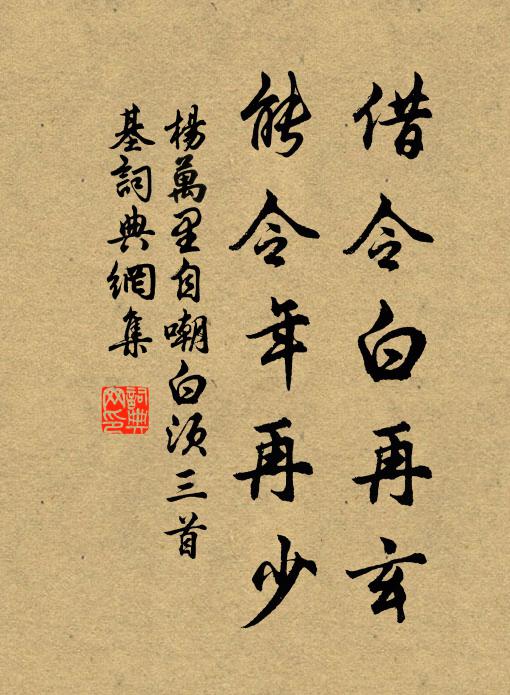 借令白再玄
能令年再少
楊萬里自嘲白須三首
基詞典網集
詞典網印